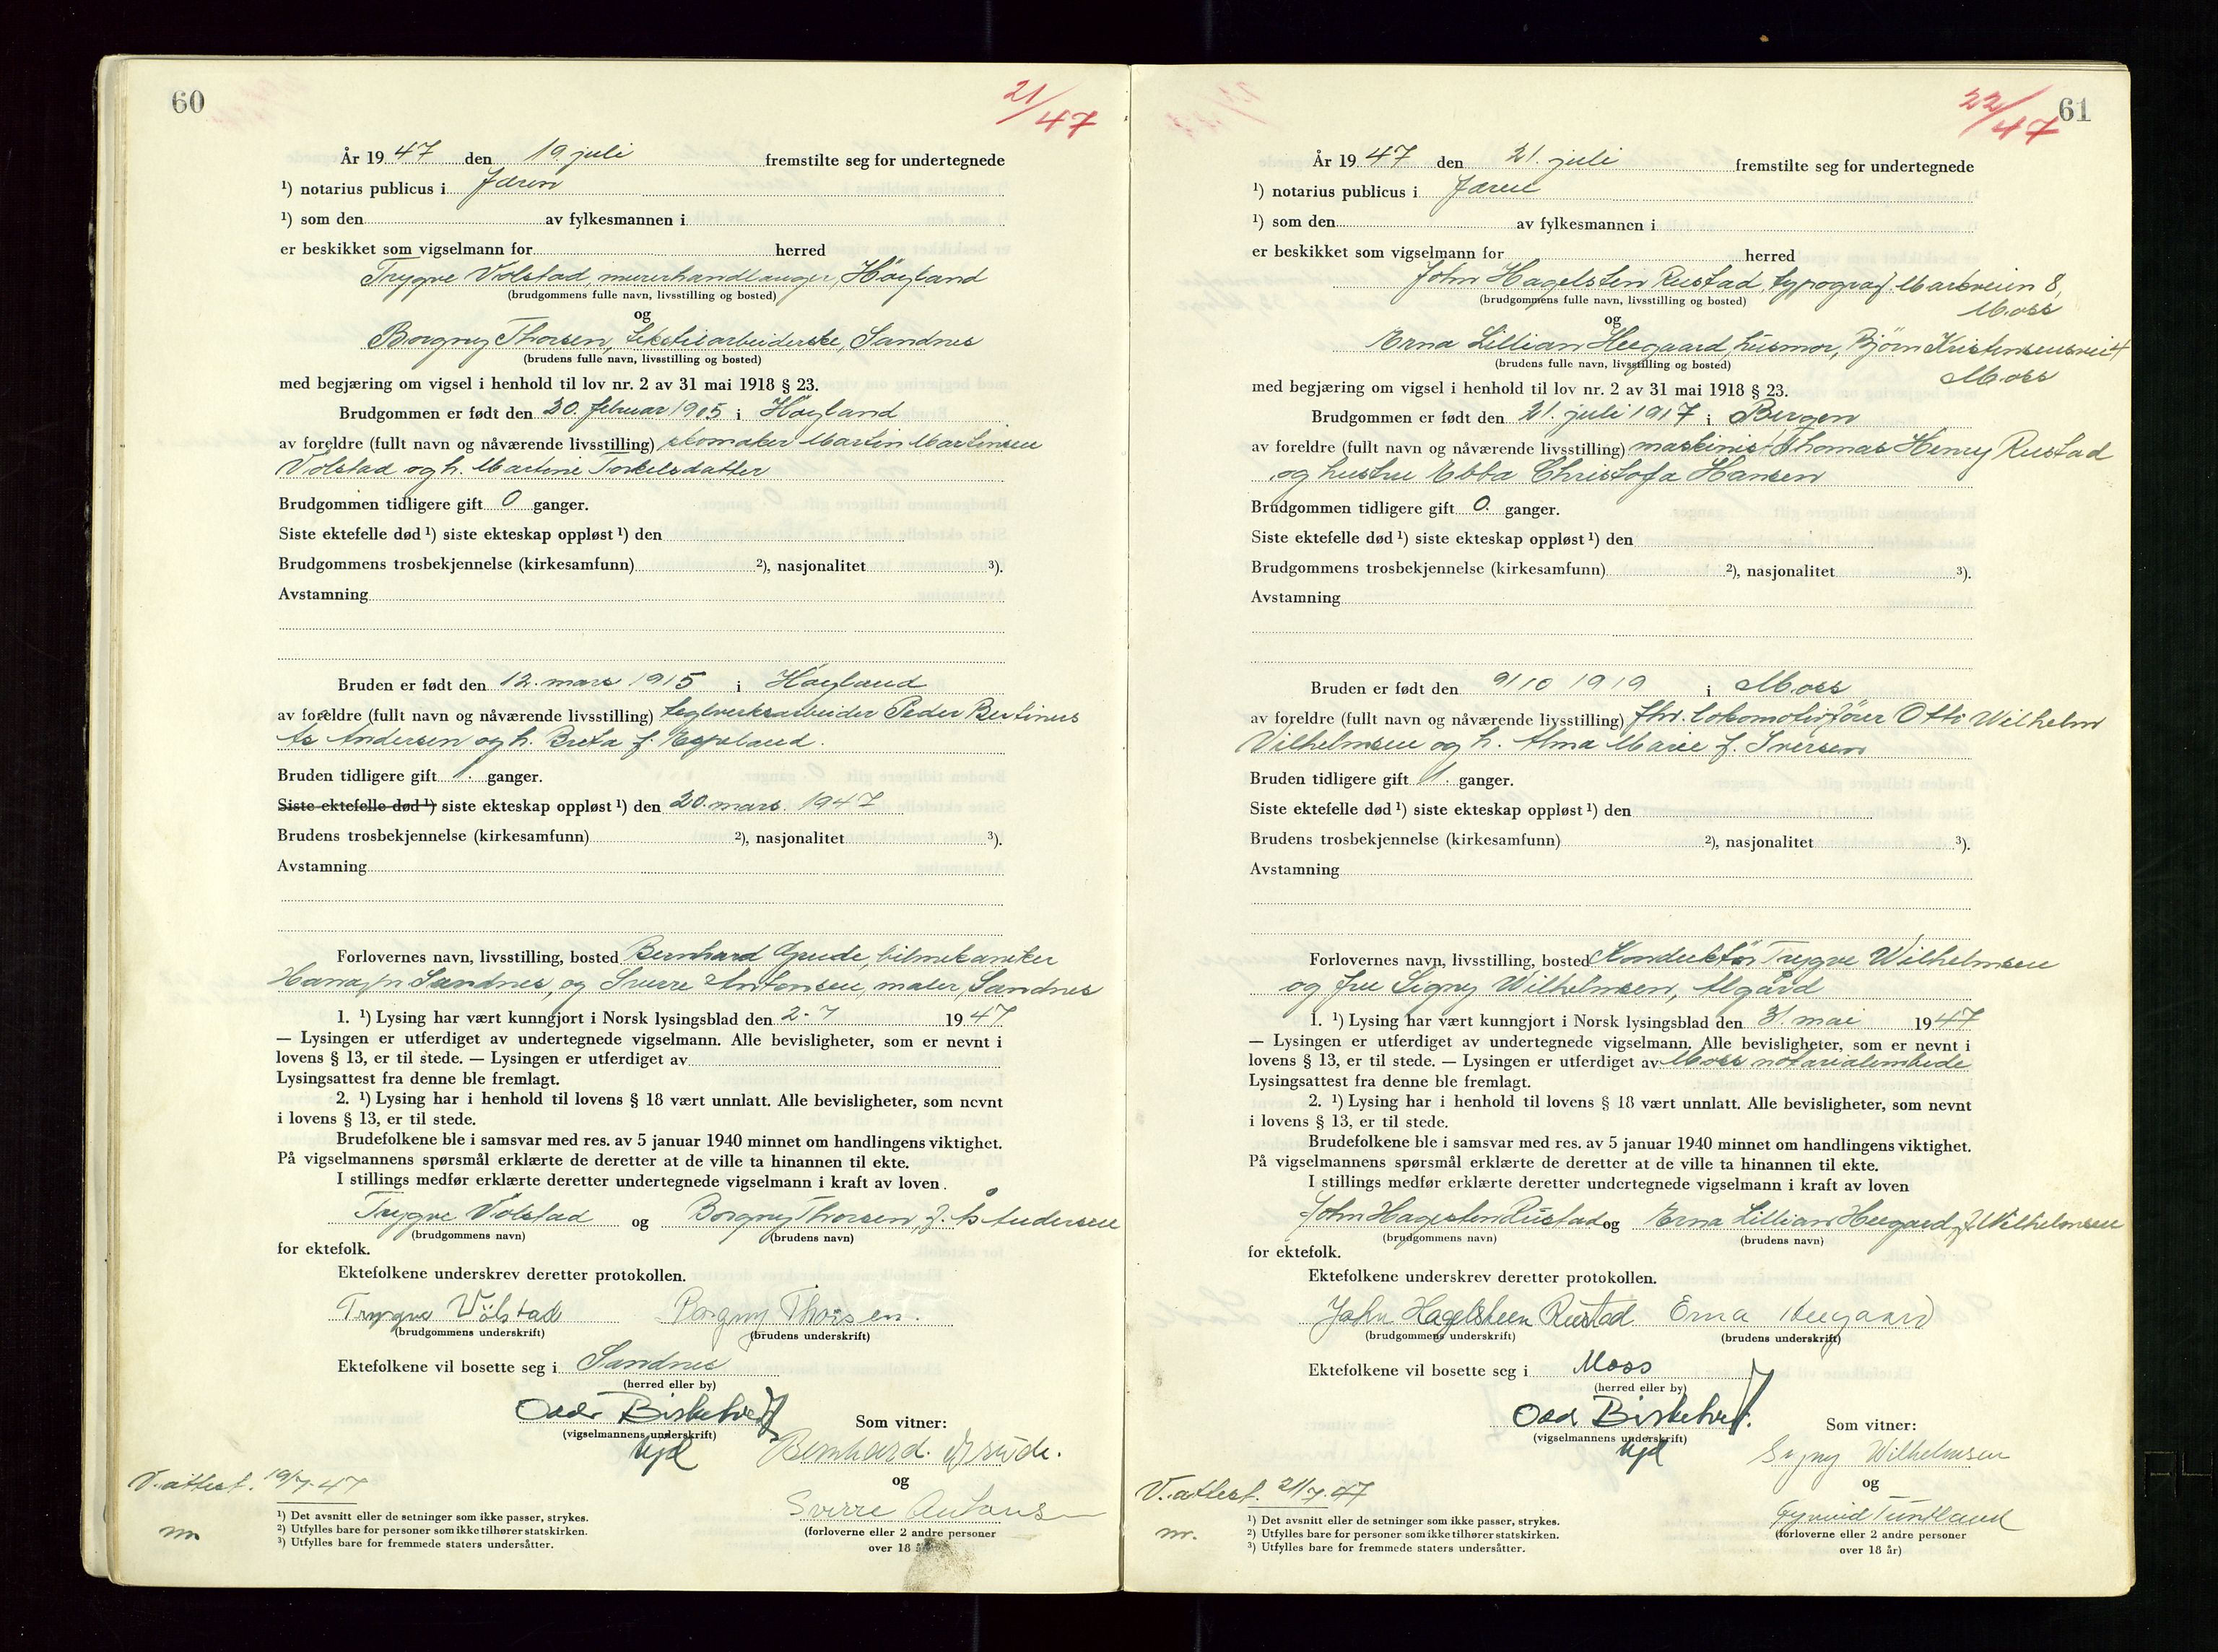 60
21/47
År 1947 den 19. juli fremstilte seg for undertegnede
¹) notarius publicus i Jæren
¹) som den av fylkesmannen i
er beskikket som vigselmann for herred
Trygve Vølstad, murerhandlanger, Høyland
(brudgommens fulle navn, livsstilling og bosted)
og
Borgny Thorsen, tekstilarbeiderske, Sandnes
(brudens fulle navn, livsstilling og bosted)
med begjæring om vigsel i henhold til lov nr. 2 av 31 mai 1918 § 23.
Brudgommen er født den 20. februar 1905 i Høyland
av foreldre (fullt navn og nåværende livsstilling) skomaker Martin Martinsen
Vølstad og h. Martine Torkelsdatter
Brudgommen tidligere gift 0 ganger.
Siste ektefelle død ¹) siste ekteskap oppløst ¹) den
Brudgommens trosbekjennelse (kirkesamfunn) ²), nasjonalitet ³).
Avstamning
Bruden er født den 12. mars 1915 i Høyland
av foreldre (fullt navn og nåværende livsstilling) teglverksarbeider Peder Bertinus
Ås Andersen og h. Berta f. Eppeland.
Bruden tidligere gift 1. ganger.
Siste ektefelle død ¹) siste ekteskap oppløst ¹) den 20. mars 1947
Brudens trosbekjennelse (kirkesamfunn) ²), nasjonalitet ³).
Avstamning
Forlovernes navn, livsstilling, bosted Bernhard Grude, bilmekaniker
Hana p/r Sandnes, og Sverre Antonsen, maler, Sandnes
1. ¹) Lysing har vært kunngjort i Norsk lysingsblad den 2-7 1947
— Lysingen er utferdiget av undertegnede vigselmann. Alle bevisligheter, som er nevnt i
lovens § 13, er til stede. — Lysingen er utferdiget av
Lysingsattest fra denne ble fremlagt.
2. ¹) Lysing har i henhold til lovens § 18 vært unnlatt. Alle bevisligheter, som nevnt
i lovens § 13, er til stede.
Brudefolkene ble i samsvar med res. av 5 januar 1940 minnet om handlingens viktighet.
På vigselmannens spørsmål erklærte de deretter at de ville ta hinannen til ekte.
I stillings medfør erklærte deretter undertegnede vigselmann i kraft av loven.
Trygve Vølstad og Borgny Thorsen, f. Ås Andersen
(brudgommens navn) (brudens navn)
for ektefolk.
Ektefolkene underskrev deretter protokollen.
Trygve Völstad Borgny Thorsen.
(brudgommens underskrift) (brudens underskrift)
Ektefolkene vil bosette seg i Sandnes
(herred eller by)
Odd Birketvedt Som vitner:
(vigselmannens underskrift)
kjd Bernhard Grude.
og
V. attest. 19/7-47
Sverre Antons
¹) Det avsnitt eller de setninger som ikke passer, strykes.
²) Utfylles bare for personer som ikke tilhører statskirken.
³) Utfylles bare for fremmede staters undersåtter.
(forloverne eller 2 andre personer
over 18
61
22/47
År 1947 den 21. juli fremstilte seg for undertegnede
¹) notarius publicus i Jæren
¹) som den av fylkesmannen i
er beskikket som vigselmann for herred
John Hagelsten Rustad, typograf. Markveien 8,
Moss
(brudgommens fulle navn, livsstilling og bosted)
og
Erna Lillian Heegaard, husmor, Bjørn Kristensensvei 4
Moss
(brudens fulle navn, livsstilling og bosted)
med begjæring om vigsel i henhold til lov nr. 2 av 31 mai 1918 § 23.
Brudgommen er født den 21. juli 1917 i Bergen
av foreldre (fullt navn og nåværende livsstilling) maskinist Thomas Henry Rustad
og hustru Ebba Christofa Hansen
Brudgommen tidligere gift 0. ganger.
Siste ektefelle død ¹) siste ekteskap oppløst ¹) den
Brudgommens trosbekjennelse (kirkesamfunn) ²), nasjonalitet ³).
Avstamning
Bruden er født den 9/10 1919 i Moss
av foreldre (fullt navn og nåværende livsstilling) fhv. lokomotivfører Otto Wilhelm
Vilhelmsen og h. Alma Marie f. Iversen
Bruden tidligere gift 1. ganger.
Siste ektefelle død ¹) siste ekteskap oppløst ¹) den
Brudens trosbekjennelse (kirkesamfunn) ²), nasjonalitet ³).
Avstamning
Forlovernes navn, livsstilling, bosted Konduktør Trygve Wilhelmsen
og fru Signy Wilhelmsen, Ålgård
1. ¹) Lysing har vært kunngjort i Norsk lysingsblad den 31. mai 1947
— Lysingen er utferdiget av undertegnede vigselmann. Alle bevisligheter, som er nevnt i
lovens § 13, er til stede. — Lysingen er utferdiget av Moss notarialembede
Lysingsattest fra denne ble fremlagt.
2. ¹) Lysing har i henhold til lovens § 18 vært unnlatt. Alle bevisligheter, som nevnt
i lovens § 13, er til stede.
Brudefolkene ble i samsvar med res. av 5 januar 1940 minnet om handlingens viktighet.
På vigselmannens spørsmål erklærte de deretter at de ville ta hinannen til ekte.
I stillings medfør erklærte deretter undertegnede vigselmann i kraft av loven
John Hagesten Rustad og Erna Lillian Heegaard, f. Wilhelmsen
(brudgommens navn) (brudens navn)
for ektefolk.
Ektefolkene underskrev deretter protokollen.
John Hagelsteen Rustad Erna Heegaard
(brudgommens underskrift) (brudens underskrift)
Ektefolkene vil bosette seg i Moss
(herred eller by)
Odd Birketvedt. Som vitner:
(vigselmannens underskrift)
kjd Signy Wilhelmsen
og
V. attest. 21/7.47
Øyvind Tuntland
¹) Det avsnitt eller de setninger som ikke passer, strykes.
²) Utfylles bare for personer som ikke tilhører statskirken.
³) Utfylles bare for fremmede staters undersåtter.
(forloverne eller 2 andre personer
over 18 år)